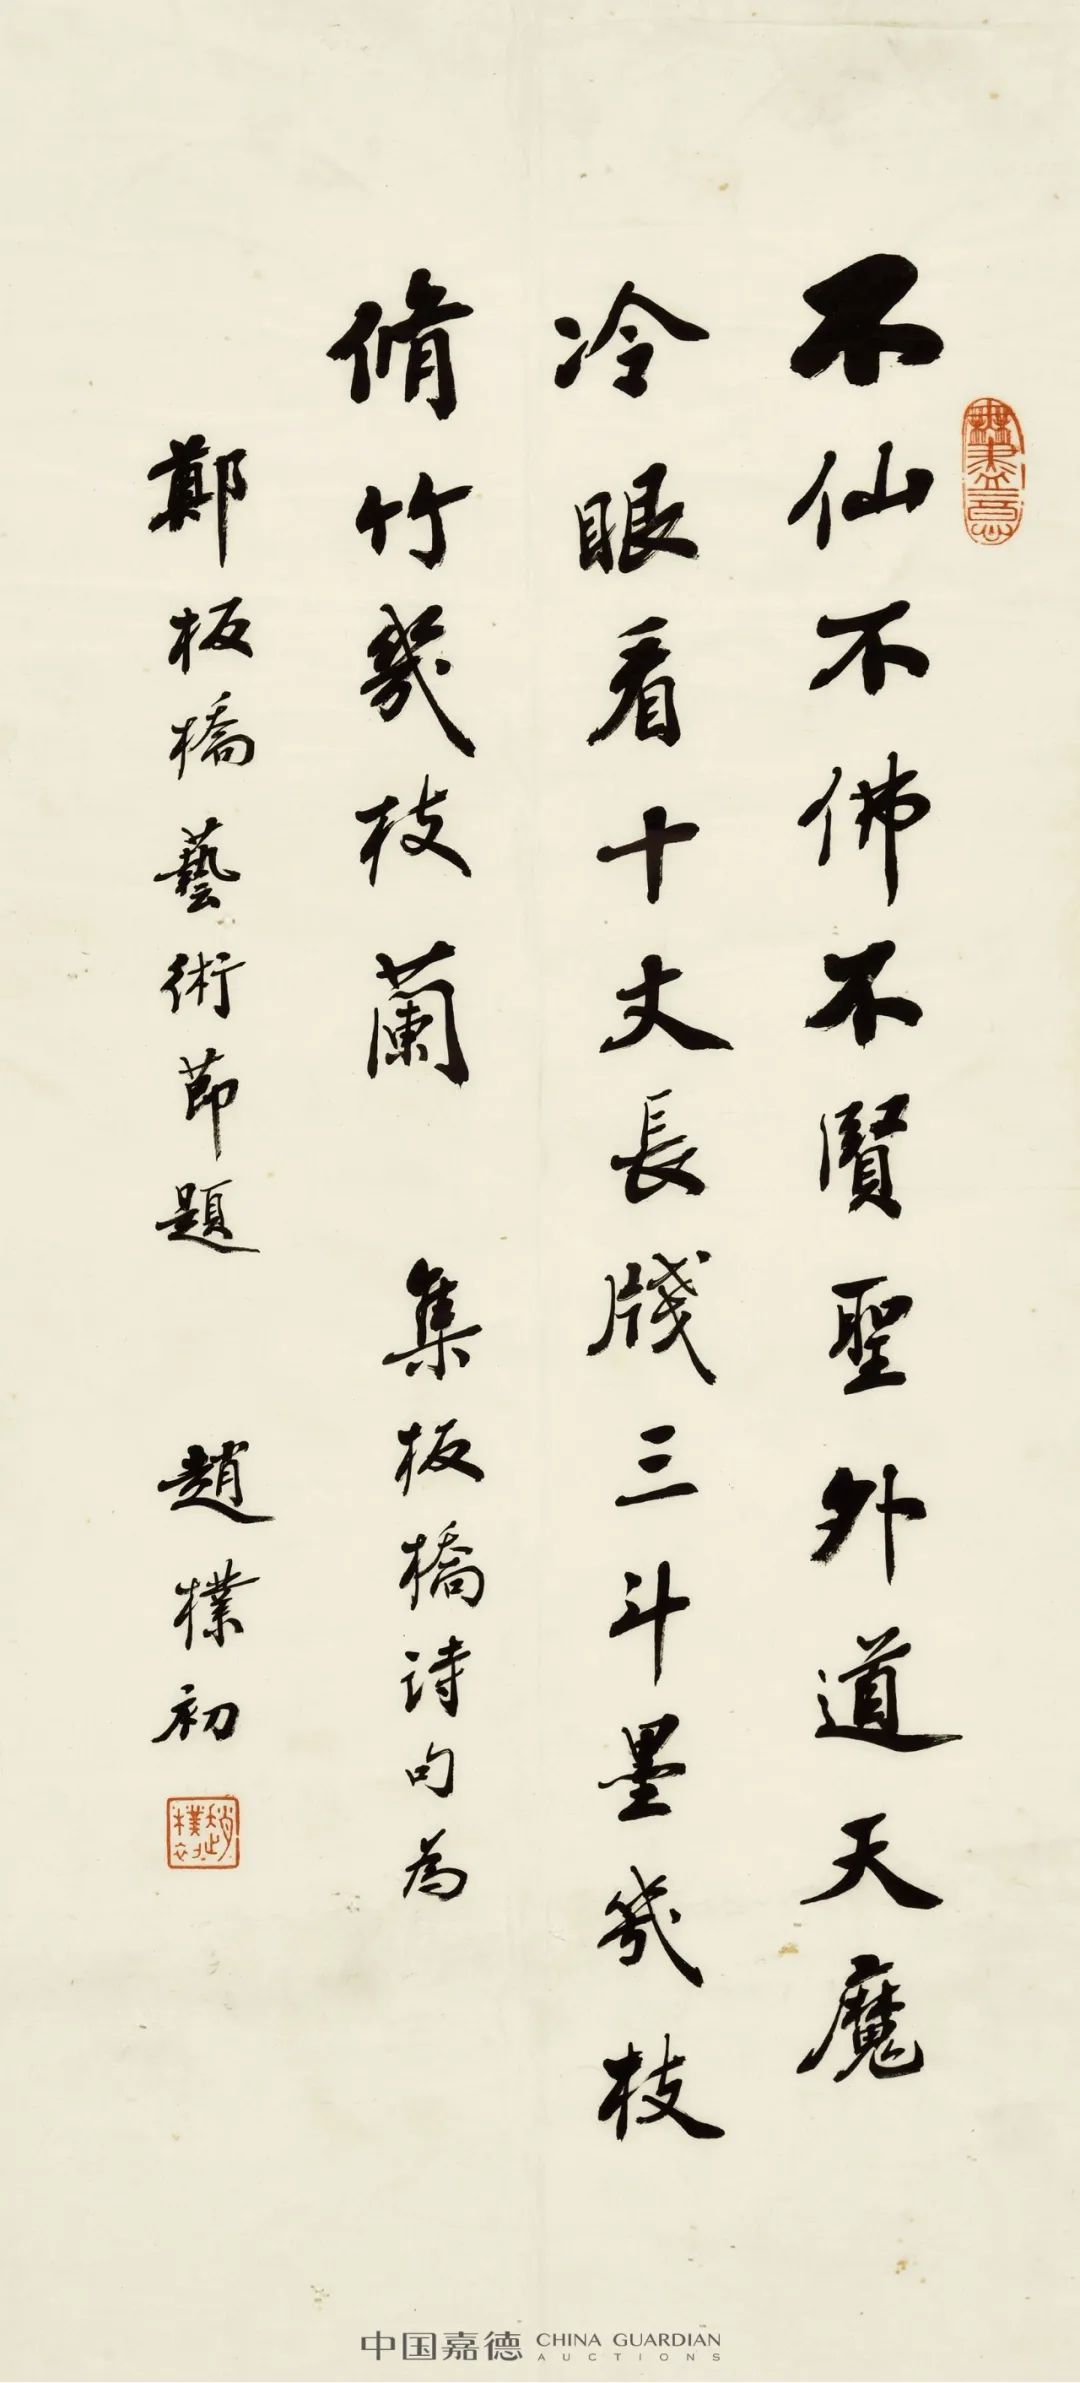 不仙不佛不賢聖外道天魔
冷眼看十丈長牋三斗墨幾枝
脩竹幾枝蘭 集板橋诗句為
鄭板橋藝術節題 趙樸初
無盡意
趙樸初
中国嘉德 CHINA GUARDIAN
AUCTIONS